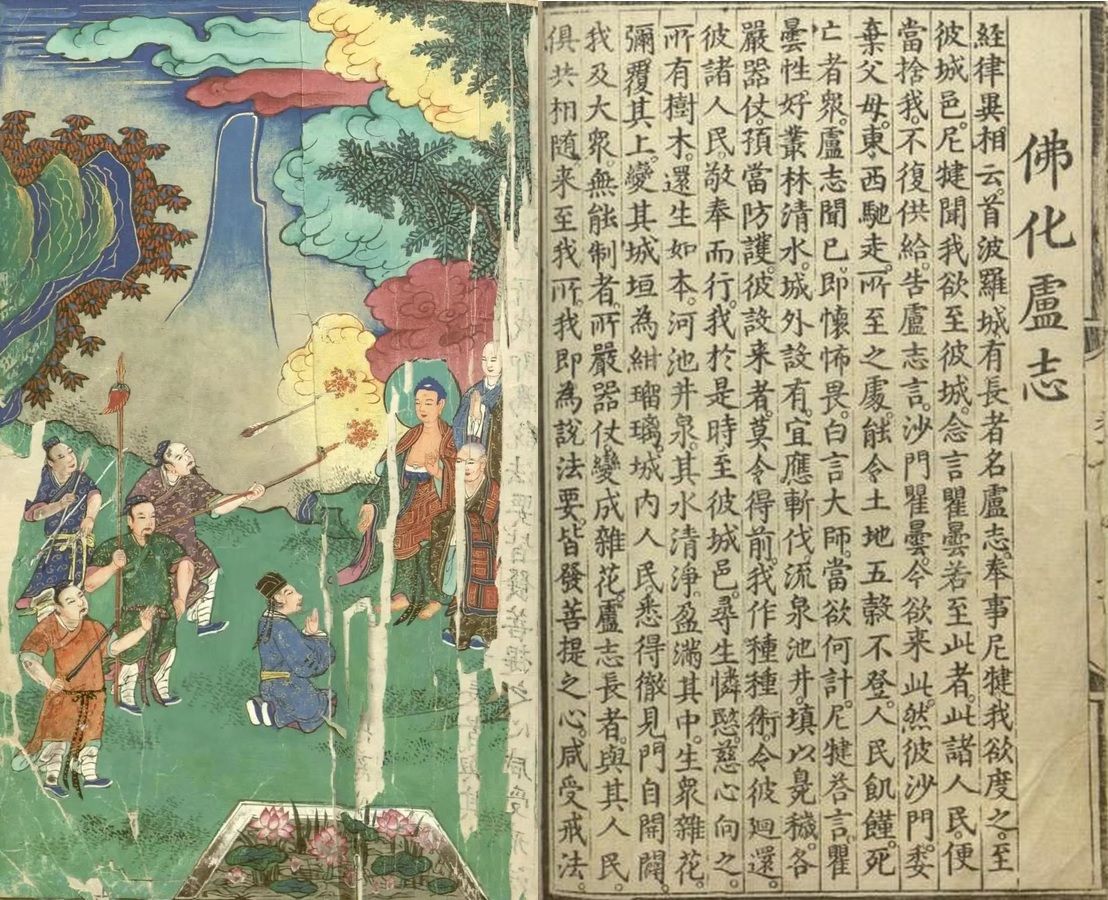 佛化盧志
経律異相云。首波羅城有長者名盧志。奉事尼犍我欲度之。至
彼城邑。尼犍聞我欲至彼城。念言瞿曇若至此者。此諸人民。便
當捨我。不復供給。告盧志言。沙門瞿曇。今欲来此。然彼沙門。委
棄父母。東西馳走。所至之處。能令土地五穀不登。人民飢饉。死
亡者衆。盧志聞已。即懷怖畏。白言大師。當欲何計。尼犍荅言瞿
曇性好叢林清水。城外設有。宜應斬伐流泉池井。填以臭穢。各
嚴器仗。預當防護。彼設来者。莫令得前。我作種種術。令彼迴還。
彼諸人民。敬奉而行。我於是時至彼城邑。尋生憐愍慈心向之。
所有樹木。還生如本。河池井泉。其水清淨。盈滿其中。生衆雜花。
彌覆其上。變其城垣為紺瑠璃。城内人民悉得徹見。門自開闢。
我及大衆。無能制者。所嚴器仗。變成雜花。盧志長者。與其人民。
俱共相随。来至我所。我即為說法要。皆發菩提之心。咸受戒法。